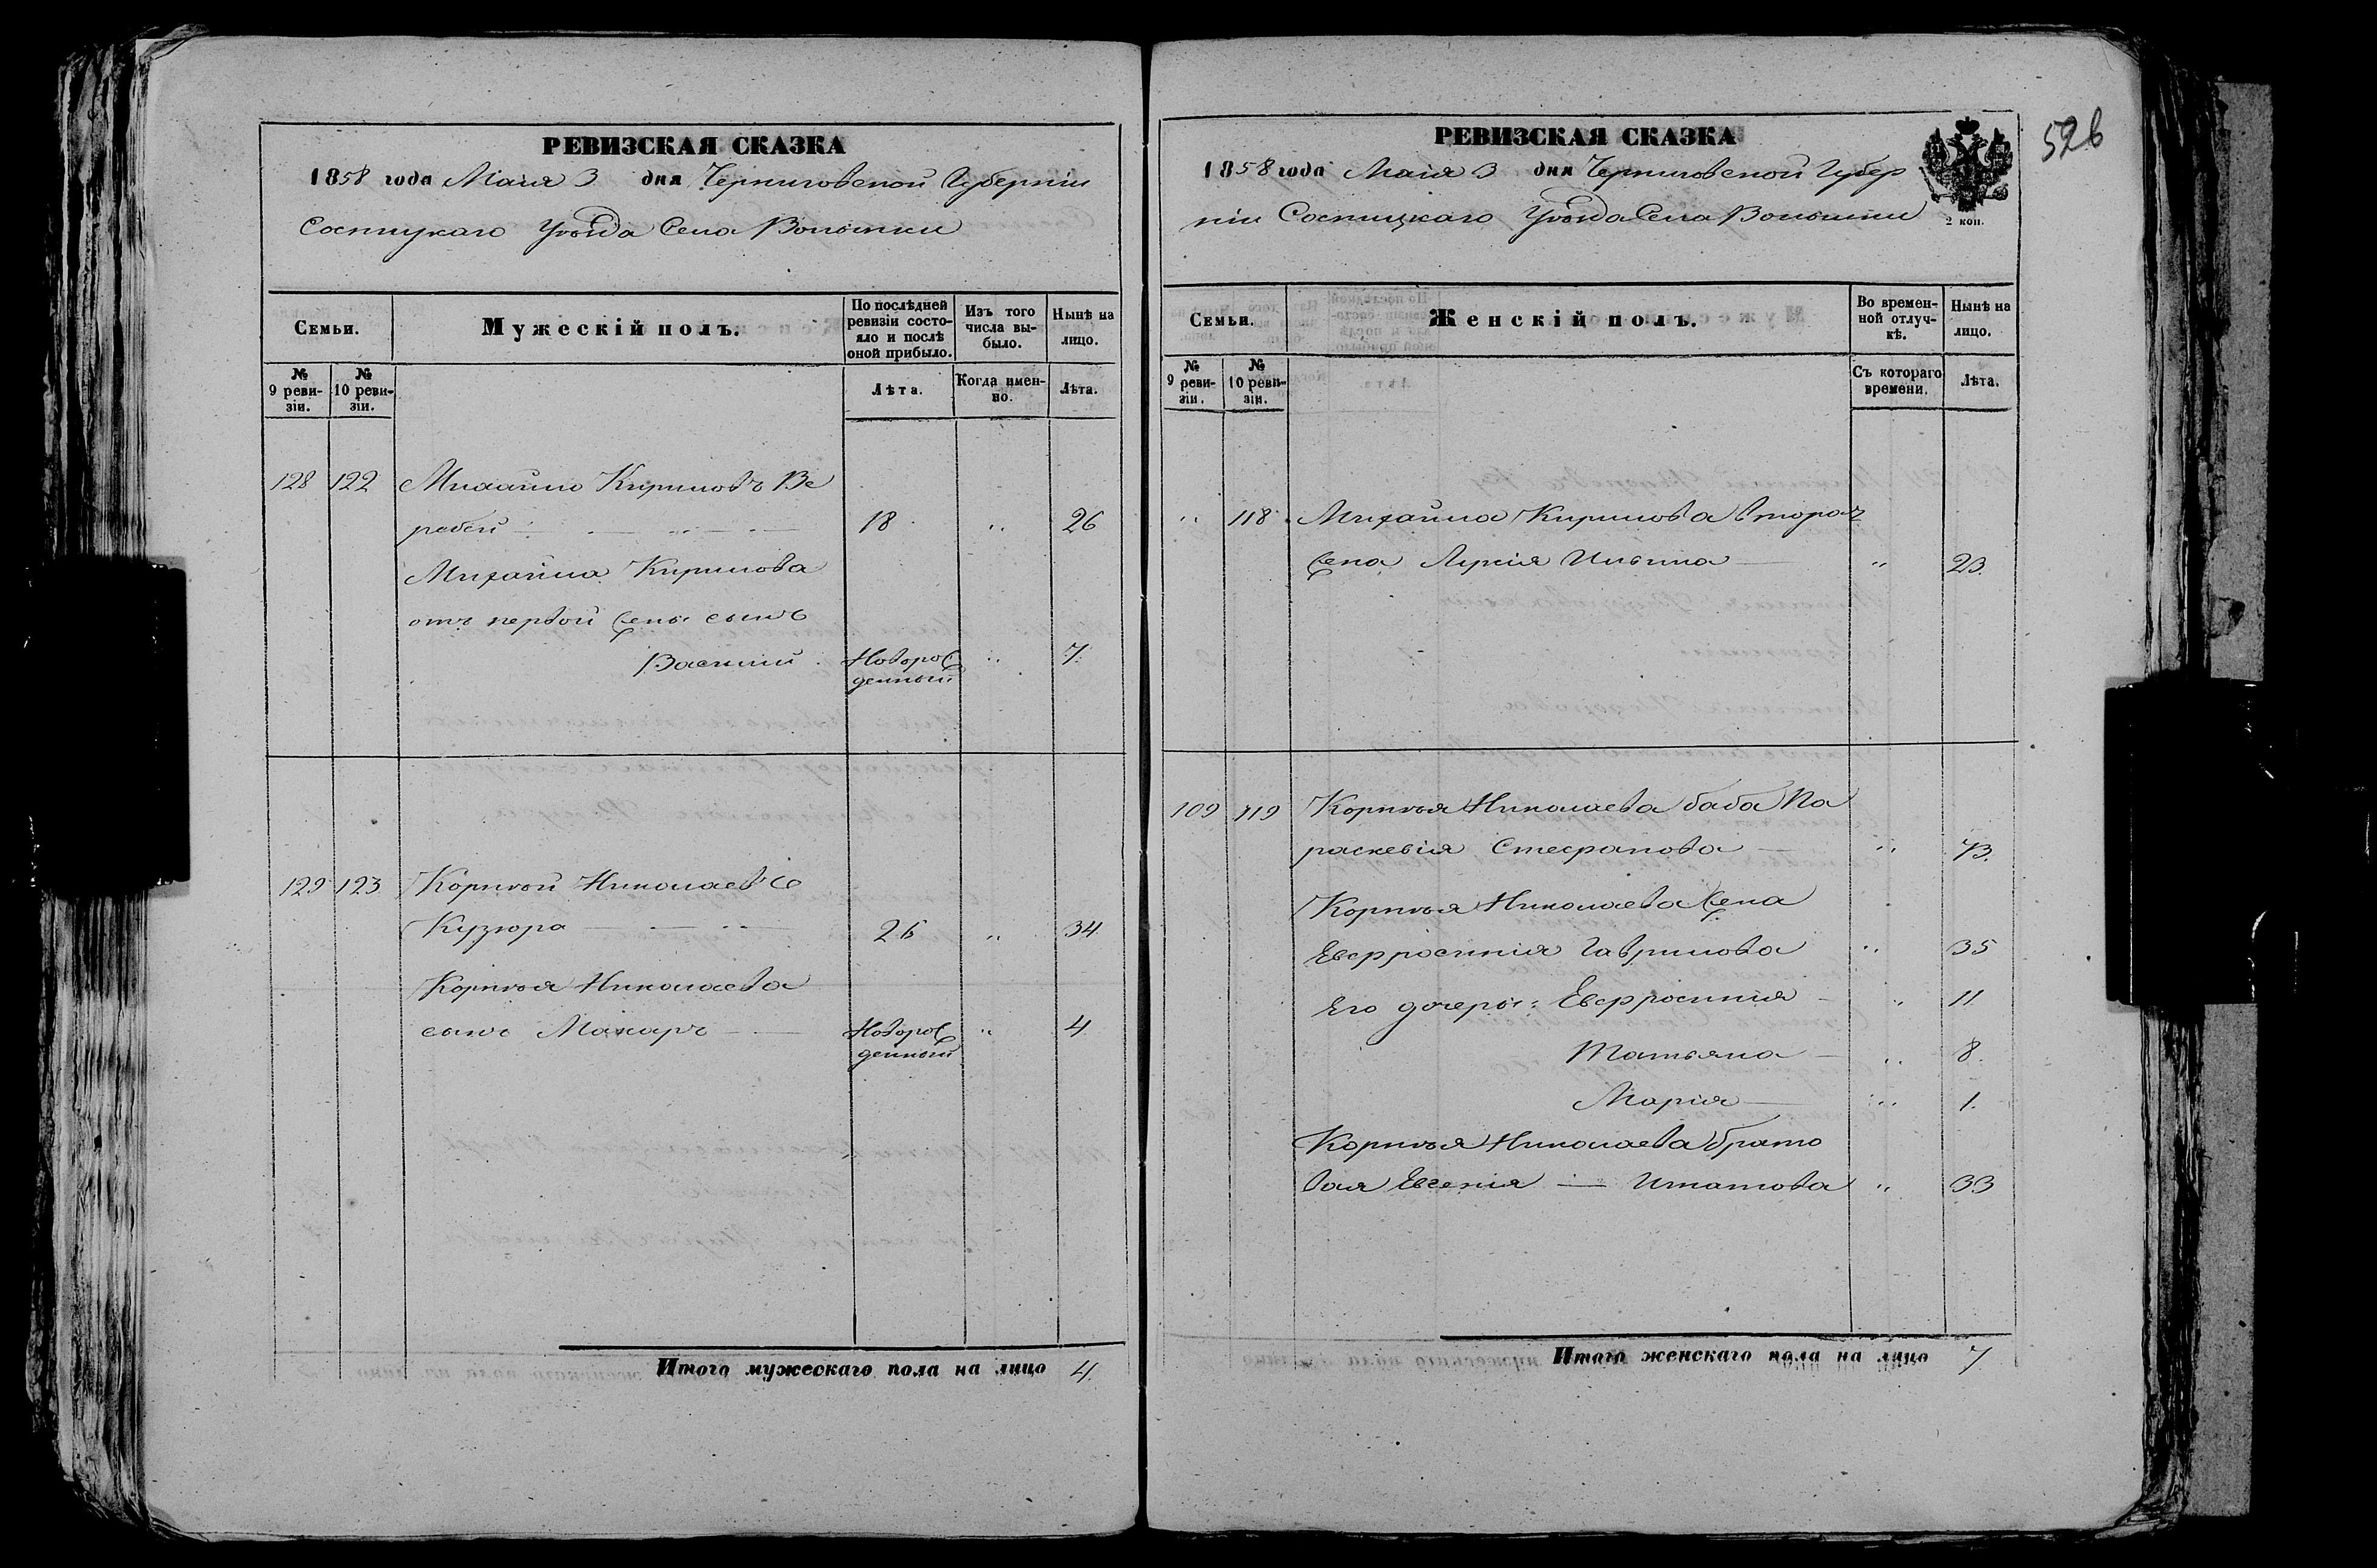 РЕВИЗСКАЯ СКАЗКА
1858 года Маія 3 дня Черниговской Губерніи
Сосницкаго Уѣзда Села Волынки
Семьи.
Мужескій полъ.
По послѣдней ревизіи состояло и послѣ оной прибыло.
Изъ того числа выбыло.
Нынѣ на лицо.
№ 9 ревизіи.
№ 10 ревизіи.
Лѣта.
Когда именно.
Лѣта.
128 122 Михайло Кириловъ Ве
ребей 18 " 26
Михайла Кирилова
отъ первой жены сынъ
Василий Новорож
денный " 7.
129 123 Корнѣй Николаевъ
Кузюра 26 " 34
Корнѣя Николаева
сынъ Макаръ Новорож
денный " 4
Итого мужескаго пола на лицо 4.
526
РЕВИЗСКАЯ СКАЗКА
1858 года Маія 3 дня Черниговской Губер
ніи Сосницкаго Уѣзда Села Волынки
2 коп.
Семьи.
Женскій полъ.
Во временной отлучкѣ.
Нынѣ на лицо.
№ 9 ревизіи.
№ 10 ревизіи.
Съ котораго времени.
Лѣта.
" 118 Михайла Кирилова вторая
жена Лукія Ильина " 23.
109 119 Корнѣя Николаева баба Па
раскевія Стефанова " 73.
Корнѣя Николаева жена
Евфросинія Гаврилова " 35
Его дочеры: Евфросинія " 11
Татьяна " 8.
Марія " 1.
Корнѣя Николаева брато
вая Евгенія Игнатова " 33
Итого женскаго пола на лицо 7